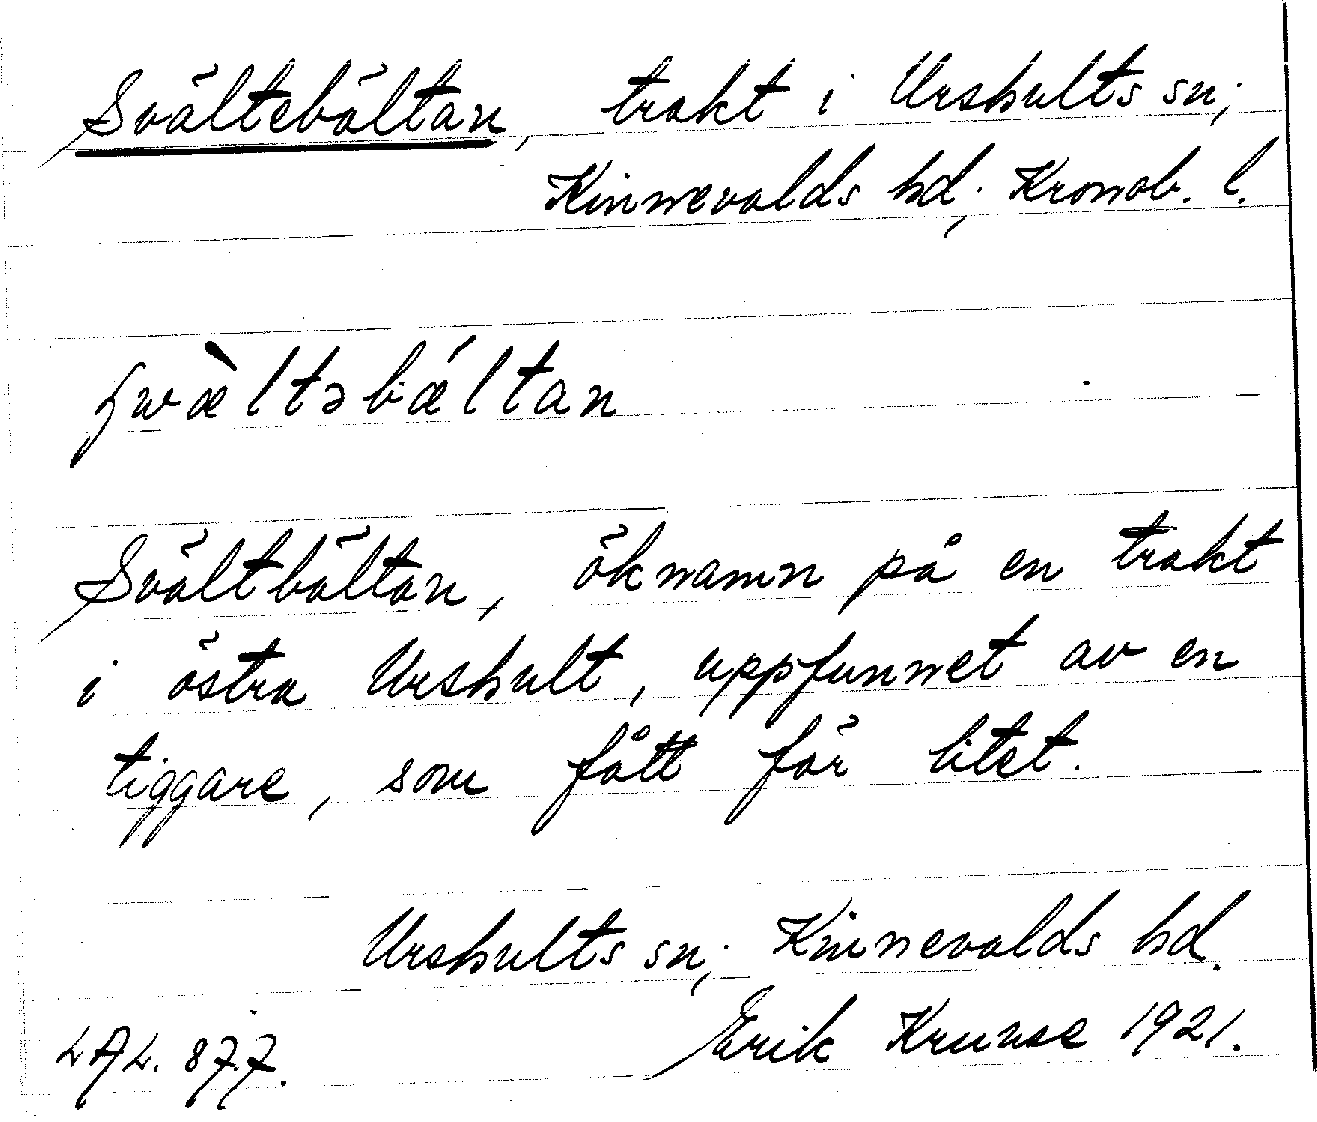 Svältebältan, trakt i Urshults sn;
Kinnevalds hd; Kronob. l.
swæ̀ltəbǽltan
Svältbältan, öknamn på en trakt
i östra Urshult, uppfunnet av en
tiggare, som fått för litet.
Urshults sn; Kinnevalds hd.
LAL. 877. Erik Kruuse 1921.